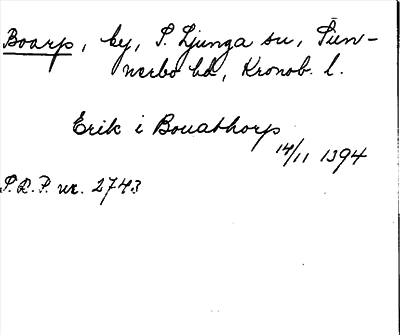 Boarp, by, S. Ljunga sn, Sun-
nerbo hd, Kronob. l.
Erik i Bouathorp
14/11 1394
S.R.P. nr. 2743